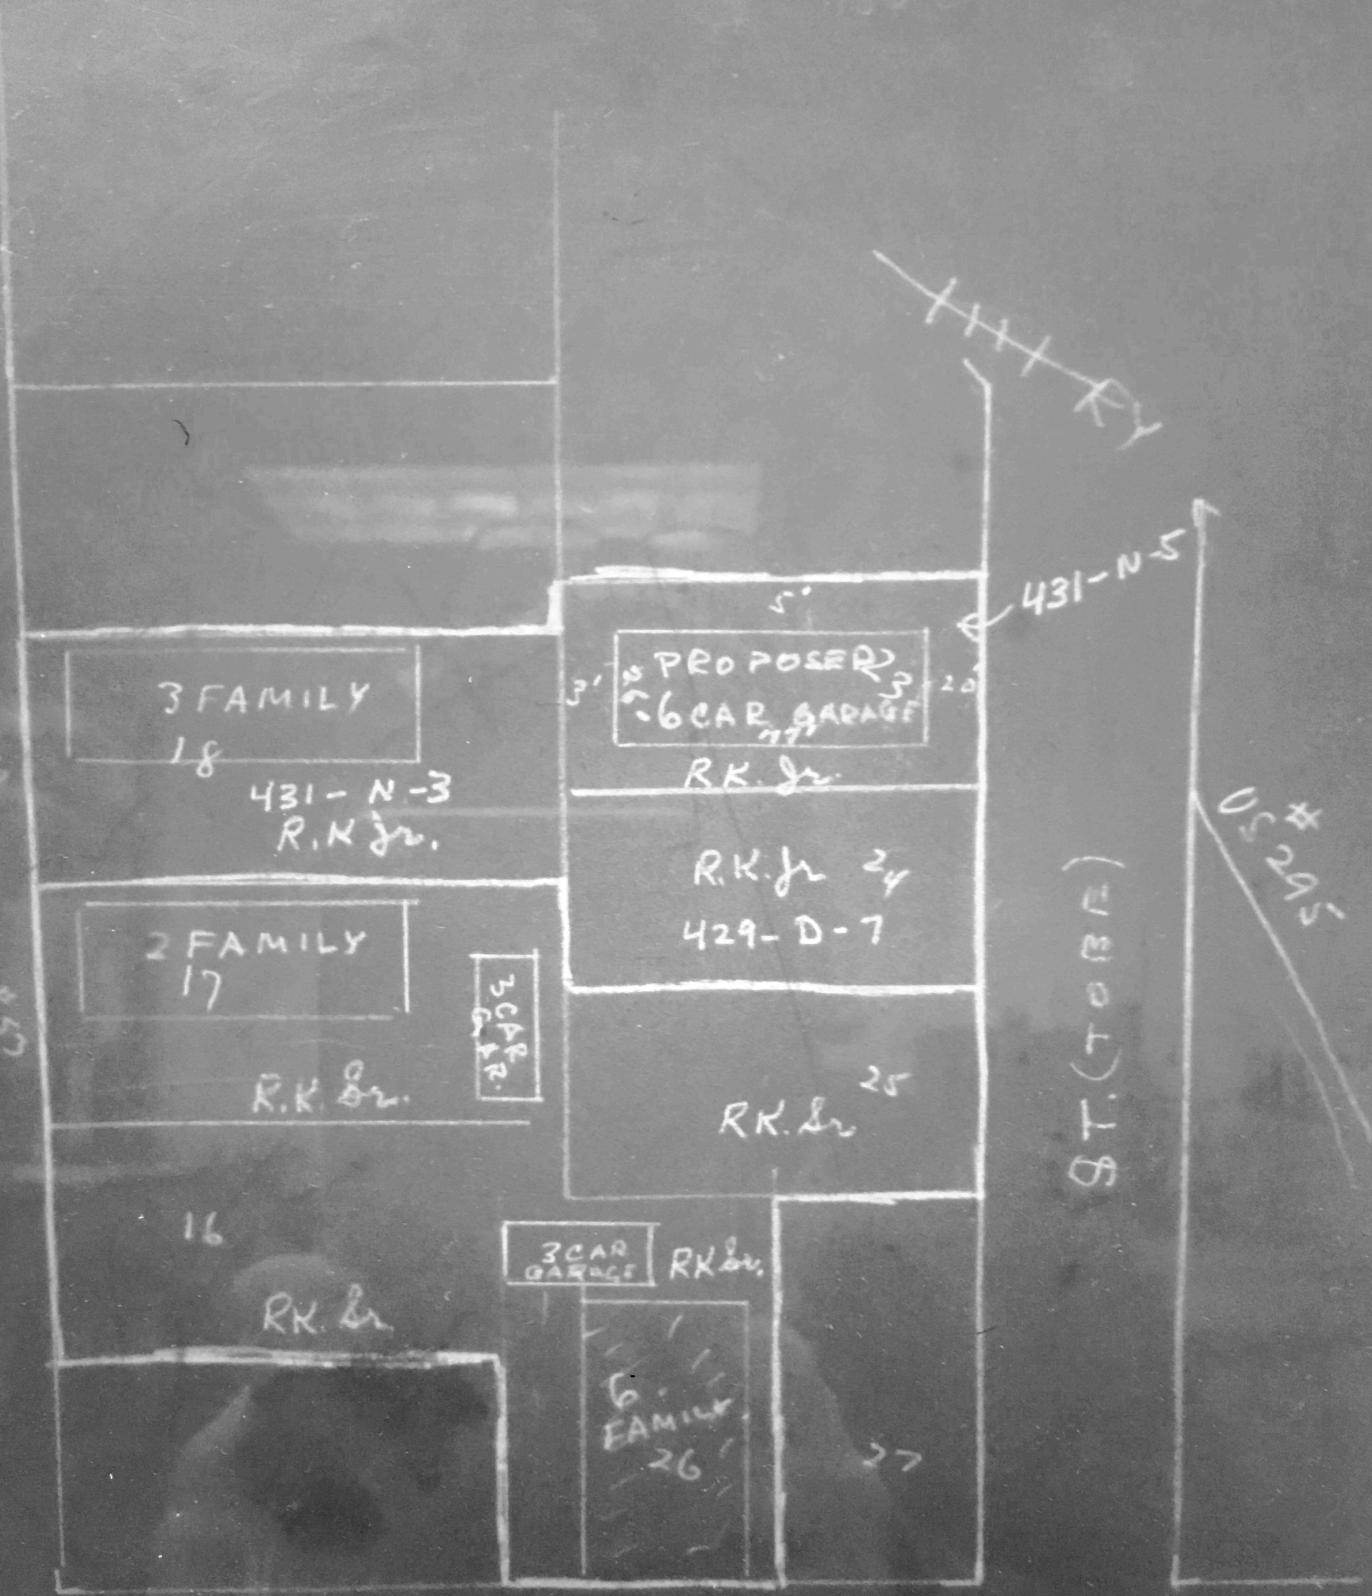 RY
431-N-5
5'
3'
PROPOSED
6 CAR GARAGE
77'
20'
R.K. Jr.
3 FAMILY
18
431-N-3
R.K Jr.
R.K. Jr 24
429-D-7
2 FAMILY
17
3 CAR
GAR.
R.K. Sr.
25
R.K. Sr
ST. (TO BE)
16
RK. Sr
3 CAR
GARAGE
RK Sr.
6
FAMILY
26
27